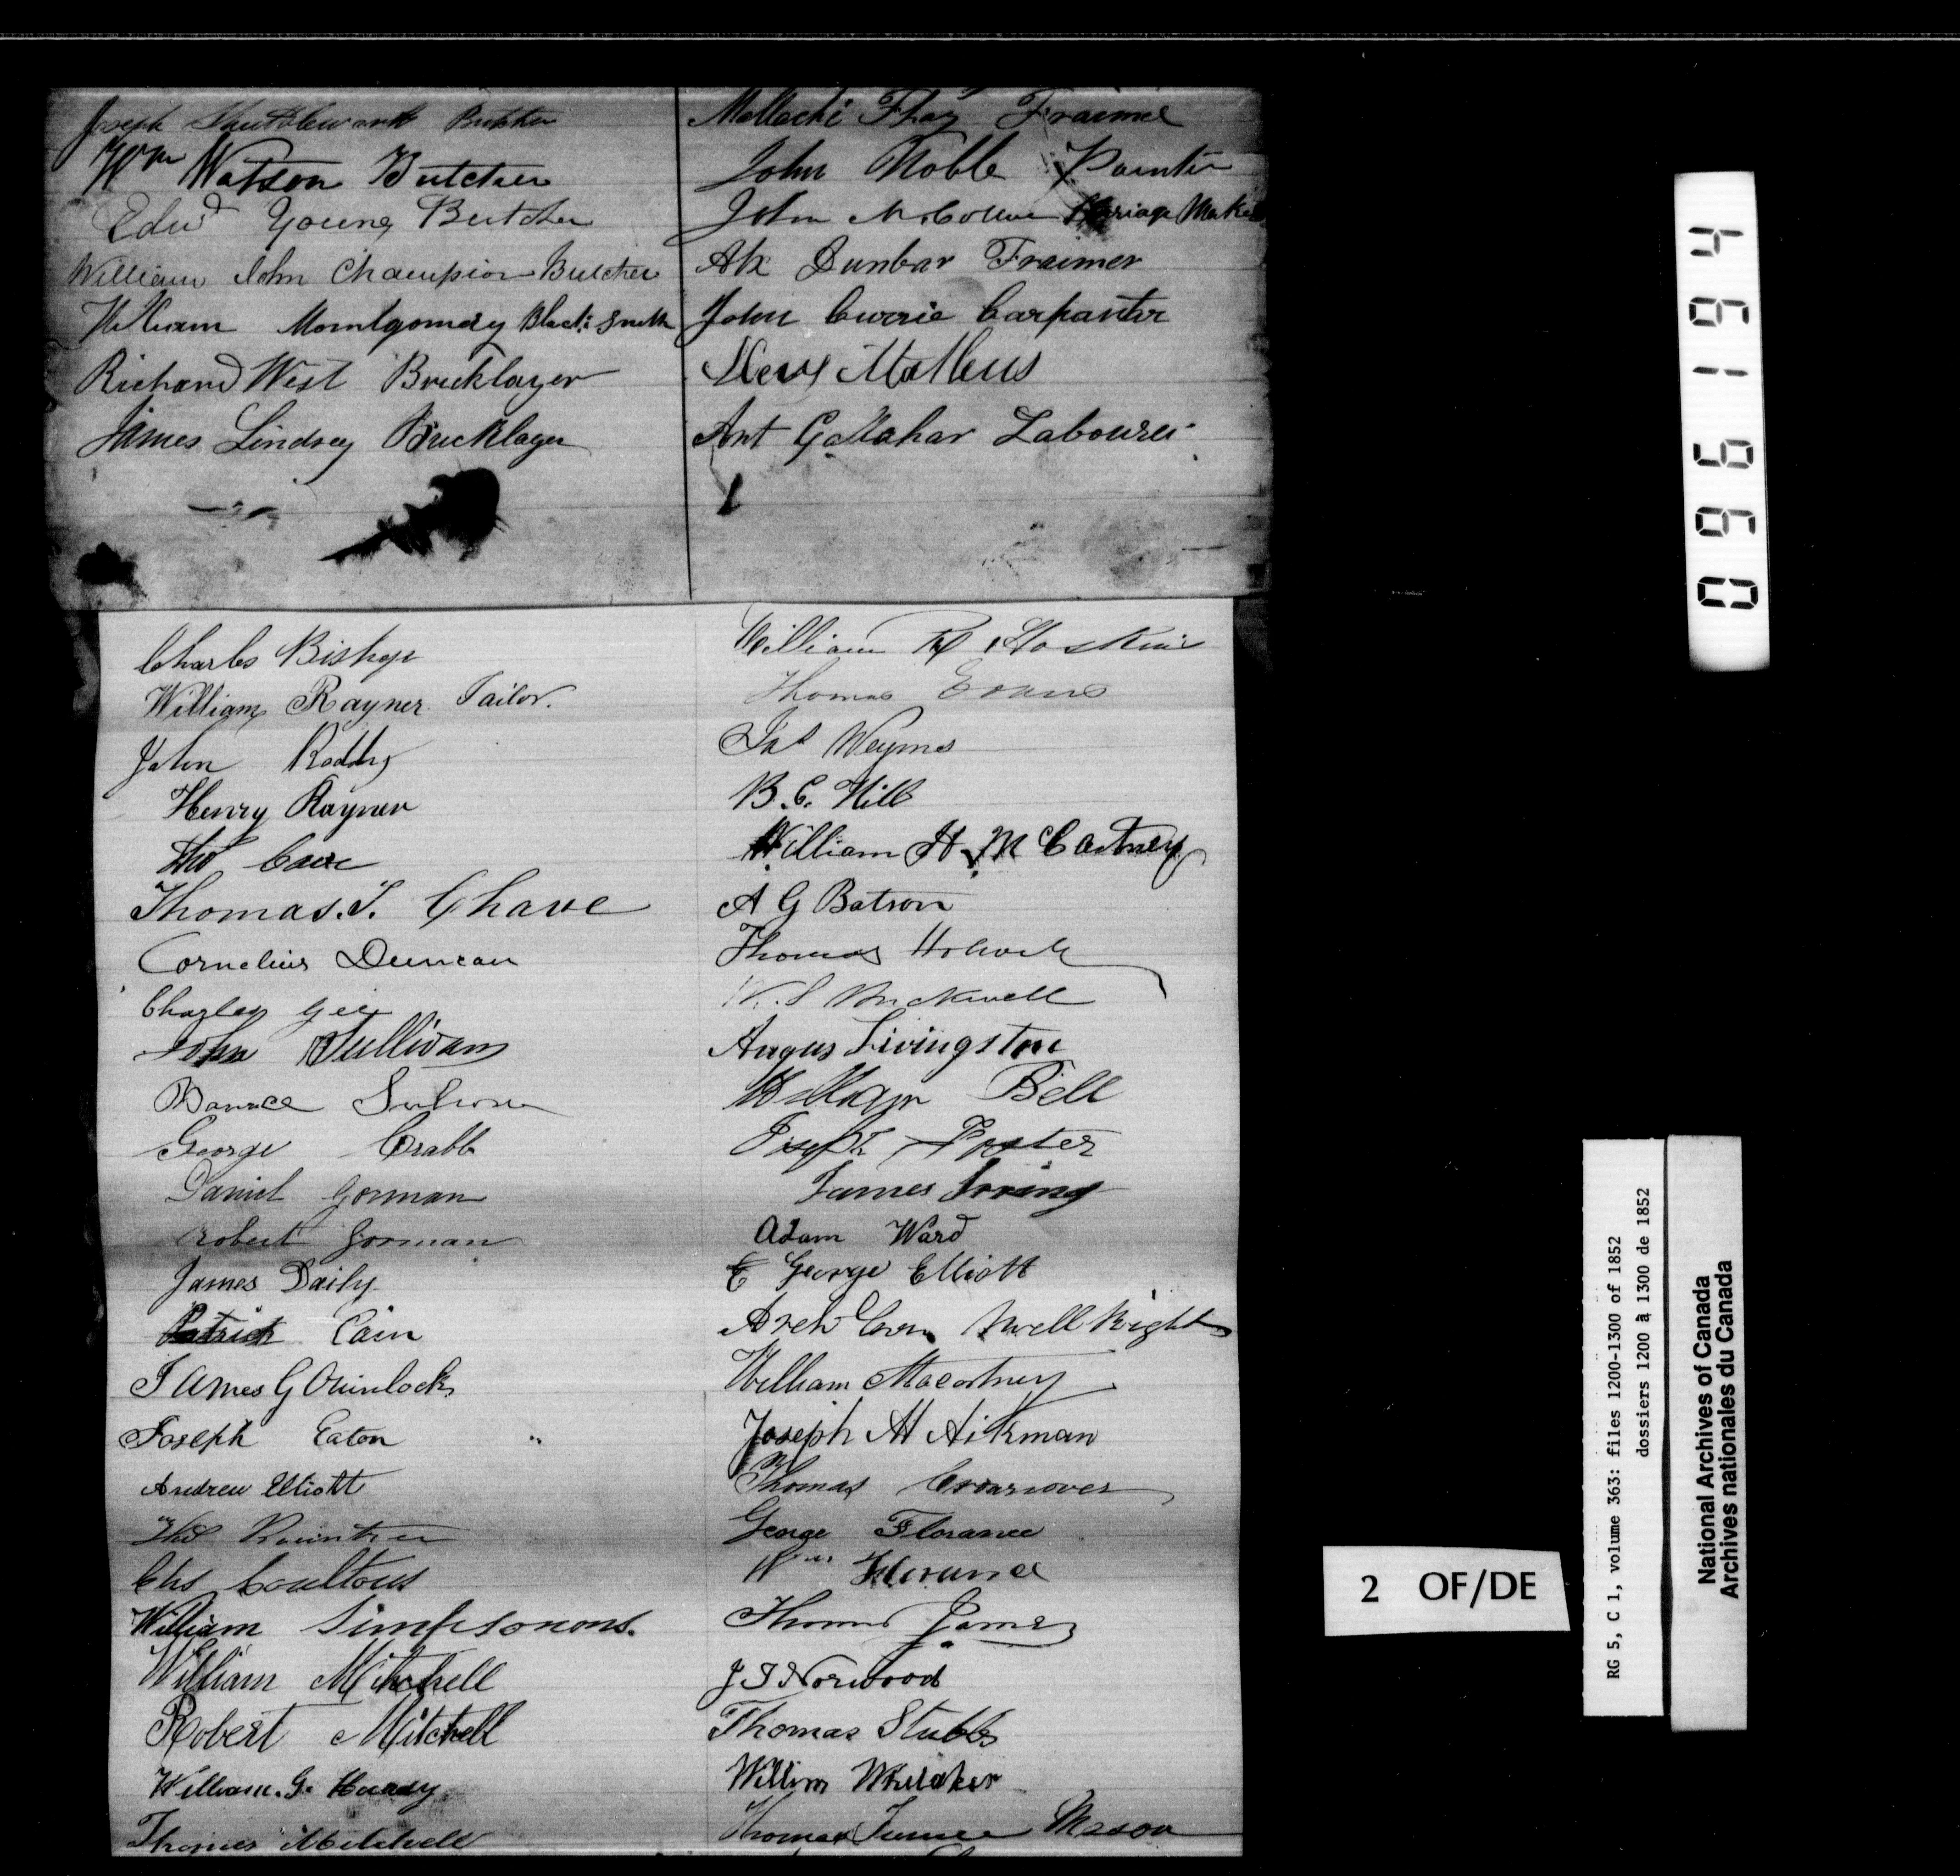 Joseph Shuttleworth Butcher
Wm Watson Butcher
Edwd Young Butcher
William John Champion Butcher
William Momtgomery Black Smith
Richard West Bricklayer
James Lindsey Bricklayer
Mallachi Fraimer
John Noble Painter
John Carriage Maker
Alx Dunbar Fraimer
John Currie Carpanter
Mathews
Ant Gallahar Labourer
Charles Bishop
William Rayner Tailor.
John Roddy
Henry Rayner
Thos
Thomas. T. Chave
Cornelius Duncan
Charley Gee
John Sullivan
George Crabb
Daniel Gorman
Robert Gorman
James Daily
Patrick Cain
James G
Joseph Eaton
Andrew Elliott
Thos Rountree
Chs Coultous
William Simpsonons.
William Mitchell
Robert Mitchell
William. G. Handy
Thomas Mitchell
William Hoskins
Thomas Evans
Jas Weyms
B. C. Hill
William H. McCartney
A G Batson
Thomas
W. S
Angus Livingston
William Bell
Joseph Foster
James Irving
Adam Ward
E George Elliott
Arch
William Macartney
Joseph H Aikman
Thomas
George Florance
Wm Florance
Thomas James
J T Norwood
Thomas Stubbs
William Whitaker
Thomas Turner Mason
0961964
2 OF/DE
RG 5, C 1, volume 363: files 1200-1300 of 1852
dossiers 1200 à 1300 de 1852
National Archives of Canada
Archives nationales du Canada